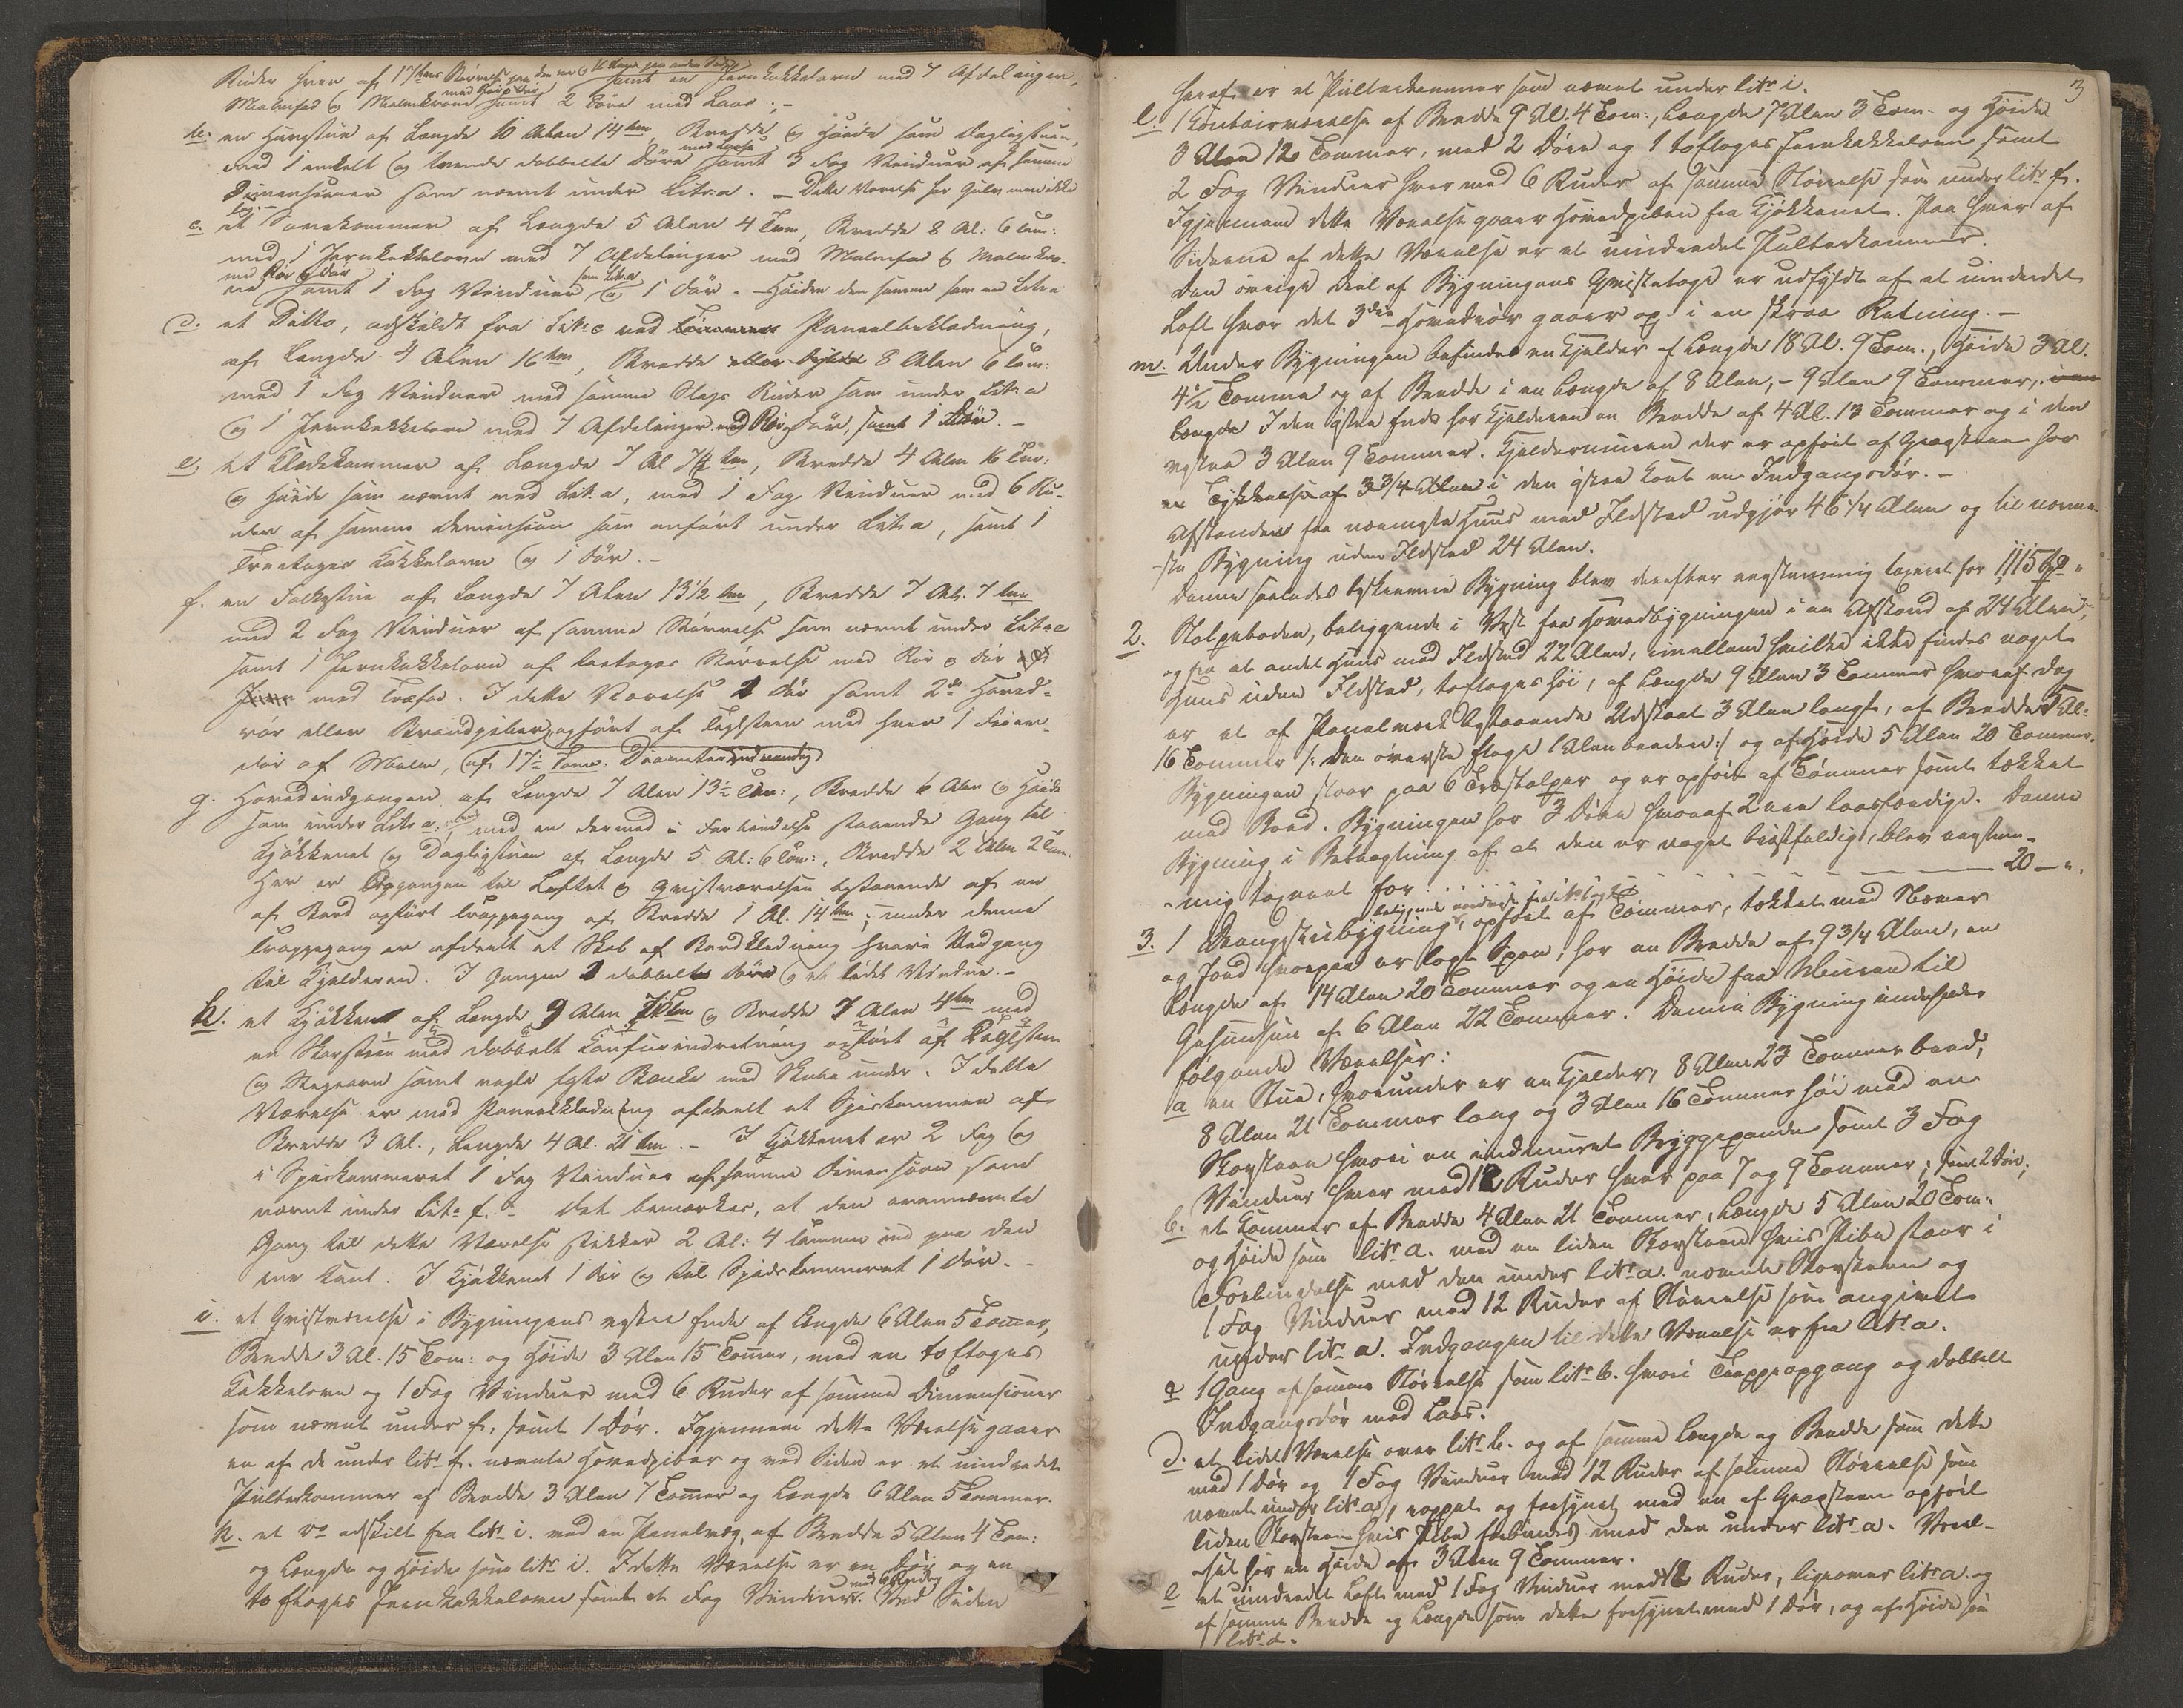 Ruder hver af 17 Tms Størrelse paa den ene og 16 Tom. paa anden Side samt en Jernkakkelovn med 7 Afdelinger,
Malmfad og Malmkrands med Rør og Dør samt 2 Døre med Laas. -
b. en Hangstue af Længde 10 Alen 14 Tm, Bredde og Høide som Dagligstuen,
med 1 enkelt og tvende dobbelte Døre med Laase samt 3 Fag Vinduer af samme
Dimensioner som nævnt under Litr: a. - Dette Værelse har Gulv men ikke
Loft. -
c. et Sovekammer af Længde 5 Alen 4 Tom, Bredde 8 Al: 6 Tom:
med 1 Jernkakkelovn med 7 Afdelinger med Malmfad & Malmkra-
nd med Rør og Dør samt 1 Fag Vinduer som Litr a og 1 Dør. - Høiden den samme som ved Litr a
d. et Ditto, adskildt fra Litr: c ved Tømmer Panelbeklædning,
af Længde 4 Alen 16 Tm, Bredde eller Dybde 8 Alen 6 Tom:
med 1 Fag Vinduer med samme Slags Ruder som under Litr: a
og 1 Jernkakkelovn med 7 Afdelinger med Rør og Dør, samt 1 Dør. -
e. et Klædekammer af Længde 7 Al 7½ Tm, Bredde 4 Alen 16 Tom:
og Høide som nævnt ved Litr: a, med 1 Fag Vinduer med 6 Ru-
der af samme Dimension som anført under Litr a, samt 1
Treetages Kakkelovn og 1 Dør. -
f. en Folkestue af Længde 7 Alen 13½ Tm, Bredde 7 Al. 7 Tm
med 2 Fag Vinduer af samme Størrelse som nævnt under Litr: e
samt 1 Jernkakkelovn af toetages Størrelse med Rør og Dør
med Træfod. I dette Værelse 2 Dør samt 2de Hoved-
rør eller Brandpiber, opført af Teglsteen med hver 1 Feier-
dør af Malm, (af 17½ Tom. Diameter indvendig)
g. Hovedindgangen af Længde 7 Alen 13½ Tom:, Bredde 6 Alen og Høide
som under Litr a, med en dermed i Forbindelse staaende Gang til
Kjøkkenet og Dagligstuen af Længde 5 Al: 6 Tom:, Bredde 2 Alen 2 Tom.
Her er Opgangen til Loftet og Qvistværelsen bestaaende af en
af Bord opført Trappegang af Bredde 1 Al. 14 Tm; under denne
Trappegang er afdeelt et Skab af Bordklædning hvori Nedgang
til Kjelderen. I Gangen 2 dobbelte Døre og et lidet Vindue. -
h. et Kjøkken af Længde 9 Alen 7½ Tm og Bredde 7 Alen 4 Tm med
en Skorsteen med dobbelt Komfurindretning opført af Teglsteen
og Stegeovn samt nogle faste Bænke med Skabe under. I dette
Værelse er med Panelklædning afdeelt et Spiskammer af
Bredde 3 Al., Længde 4 Al. 21 Tm. - I Kjøkkenet er 2 Fag og
i Spiskammeret 1 Fag Vinduer af samme Dimension som
nævnt under Litr: f. - Det bemærkes, at den ovennævnte
Gang til dette Værelse stikker 2 Al: 4 Tomme ind paa den
ene Kant. I Kjøkkenet 1 Dør og til Spiskammeret 1 Dør. -
i. et Qvistværelse i Bygningens vestre Ende af Længde 6 Alen 5 Tommer,
Bredde 3 Al. 15 Tom: og Høide 3 Alen 15 Tommer, med en to Etages
Kakkelovn og 1 Fag Vinduer med 6 Ruder af samme Dimensioner
som nævnt under f., samt 1 Dør. Igjennem dette Værelse gaaer
en af de under litr. f. nævnte Hovedpiber og ved Siden er et uindredet
Pulterkammer af Bredde 3 Alen 7 Tommer og Længde 6 Alen 5 Tommer.
k. et Do adskilt fra litr. i. ved en Panelvæg, af Bredde 5 Alen 4 Tom:
og Længde og Høide som litr i. I dette Værelse er en Dør og en
to Etages Jernkakkelovn samt et Fag Vinduer med 6 Ruder. Ved Siden
3
heraf er et Pulterkammer som nævnt under litr. i.
l. 1 Contoirværelse af Bredde 9 Al. 4 Tom:, Længde 7 Alen 3 Tom. og Høide
3 Alen 12 Tommer, med 2 Døre og 1 toEtages Jernkakkelovn samt
2 Fag Vinduer hver med 6 Ruder af samme Størrelse som under litr. f.
Igjennem dette Værelse gaaer Hovedpiben fra Kjøkkenet. Paa hver af
Siderne af dette Værelse er et uindredet Pulterkammer.
Den øvrige Deel af Bygningens Qvistetage er udfyldt af et uindredet
Loft hvor det 3die Hovedrør gaaer op i en skraa Retning. -
m. Under Bygningen befindes en Kjelder af Længde 18 Al. 9 Tom., Høide 3 Al.
4½ Tomme og af Bredde i en Længde af 8 Alen, - 9 Alen 9 Tommer,
Længde I den østre Ende har Kjelderen en Bredde af 4 Al. 13 Tommer og i den
vestre 3 Alen 9 Tommer. Kjeldermuren der er opført af Graasteen har
en Tykkelse af 3¾ Alen i den østre Kant en Indgangsdør. -
Afstanden fra nærmeste Huus med Ildsted udgjør 46¼ Alen og til nærme-
ste Bygning uden Ildsted 24 Alen.
Denne saaledes beskrevne Bygning blev derefter eenstemmig taxeret for 1,115 Spd "
2. Stolpeboden, beliggende i Vest fra Hovedbygningen i en Afstand af 24 Alen,
og fra et andet Huus med Ildsted 22 Alen, imellem hvilke ikke findes noget
Huus uden Ildsted, toetages høi, af Længde 9 Alen 3 Tommer hvoraf dog
er et af Panelværk bestaaende Udskaat 3 Alen langt, af Bredde 5 Al:
16 Tommer /: den øverste Etage 1 Alen bredere :/ og af Høide 5 Alen 20 Tommer.
Bygningen staar paa 6 Træstolper og er opført af Tømmer samt tækket
med Bord. Bygningen har 3 Døre hvoraf 2 ere laasfærdige. Denne
Bygning i Betragtning af at den er noget brøstfældig, blev eenstem-
mig taxeret for . . . . . . . . . . 20 - ".
3. 1 Drengestuebygning, beliggende opført af Tømmer, tækket med Næver
og Jord hvorpaa er lagt Spon, har en Bredde af 9¾ Alen, en
Længde af 14 Alen 20 Tommer og en Høide fra Muren til
Gesimsen af 6 Alen 22 Tommer. Denne Bygning indeholder
følgende Værelser:
a en Stue, hvorunder er en Kjelder, 8 Alen 23 Tommer bred,
8 Alen 21 Tommer lang og 3 Alen 16 Tommer høi med en
Skorsteen hvori en indmuret Bryggepande samt 3 Fag
Vinduer hver med 12 Ruder hver paa 7 og 9 Tommer, samt 2 Døre;
b. et Kammer af Bredde 4 Alen 21 Tommer, Længde 5 Alen 20 Tom:
og Høide som litr a. med en liden Skorsteen hvis Pibe staar i
Forbindelse med den under litr. a. nævnte Skorsteen og
1 Fag Vinduer med 12 Ruder af Størrelse som angivet
under litr a. Indgangen til dette Værelse er fra litr a.
c 1 Gang af samme Størrelse som litr b. hvori Trappeopgang og dobbelt
Indgangsdør med Laas.
d. et lidet Værelse over litr b. og af samme Længde og Bredde som dette
med 1 Dør og 1 Fag Vinduer med 12 Ruder af samme Størrelse som
nævnt under litr a, og forsynet med en af Graasteen opført
liden Skorsteen hvis Pibe forbindes med den under litr a. Værel-
set har en Høide af 3 Alen 9 Tommer.
e et uindredt Loft med 1 Fag Vinduer med 12 Ruder, ligeover litr a. og
af samme Bredde og Længde som dette forsynet med 1 Dør, og af Høide som
litr d.